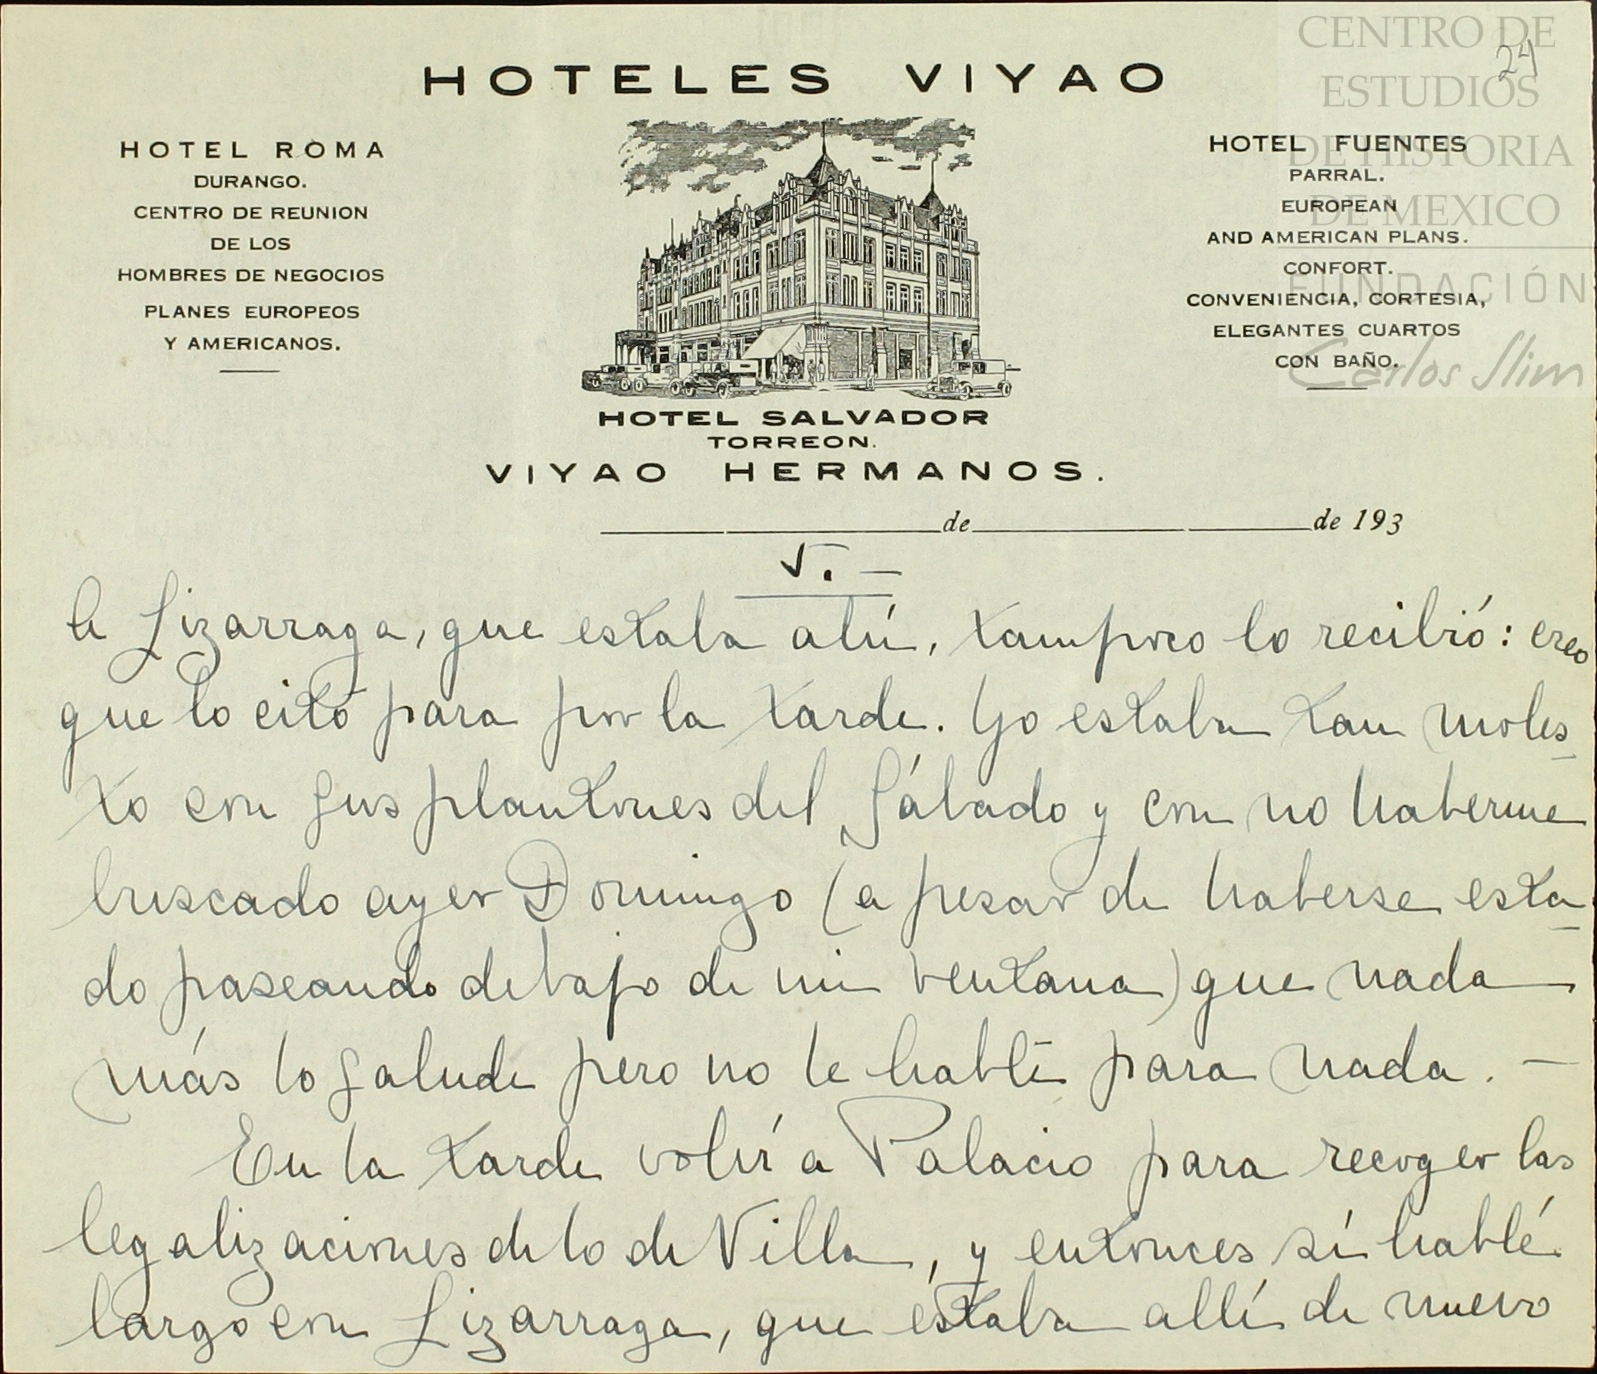 CENTRO DE
ESTUDIOS
DE HISTORIA
DE MEXICO
FUNDACIÓN
Carlos Slim
24
HOTELES VIYAO
HOTEL ROMA
DURANGO.
CENTRO DE REUNION
DE LOS
HOMBRES DE NEGOCIOS
PLANES EUROPEOS
Y AMERICANOS.
HOTEL FUENTES
PARRAL.
EUROPEAN
AND AMERICAN PLANS.
CONFORT.
CONVENIENCIA, CORTESIA,
ELEGANTES CUARTOS
CON BAÑO.
HOTEL SALVADOR
TORREON.
VIYAO HERMANOS.
de de 193
V. —
a Lizarraga, que estaba ahí, tampoco lo recibió: creo
que lo citó para por la tarde. Yo estaba tan moles_
to con sus plantones del Sábado y con no haberme
buscado ayer Domingo (a pesar de haberse esta_
do paseando debajo de mi ventana) que nada
más lo saludé pero no le hablé para nada. —
En la tarde volví a Palacio para recoger las
legalizaciones de lo de Villa, y entonces sí hablé
largo con Lizarraga, que estaba allí de nuevo